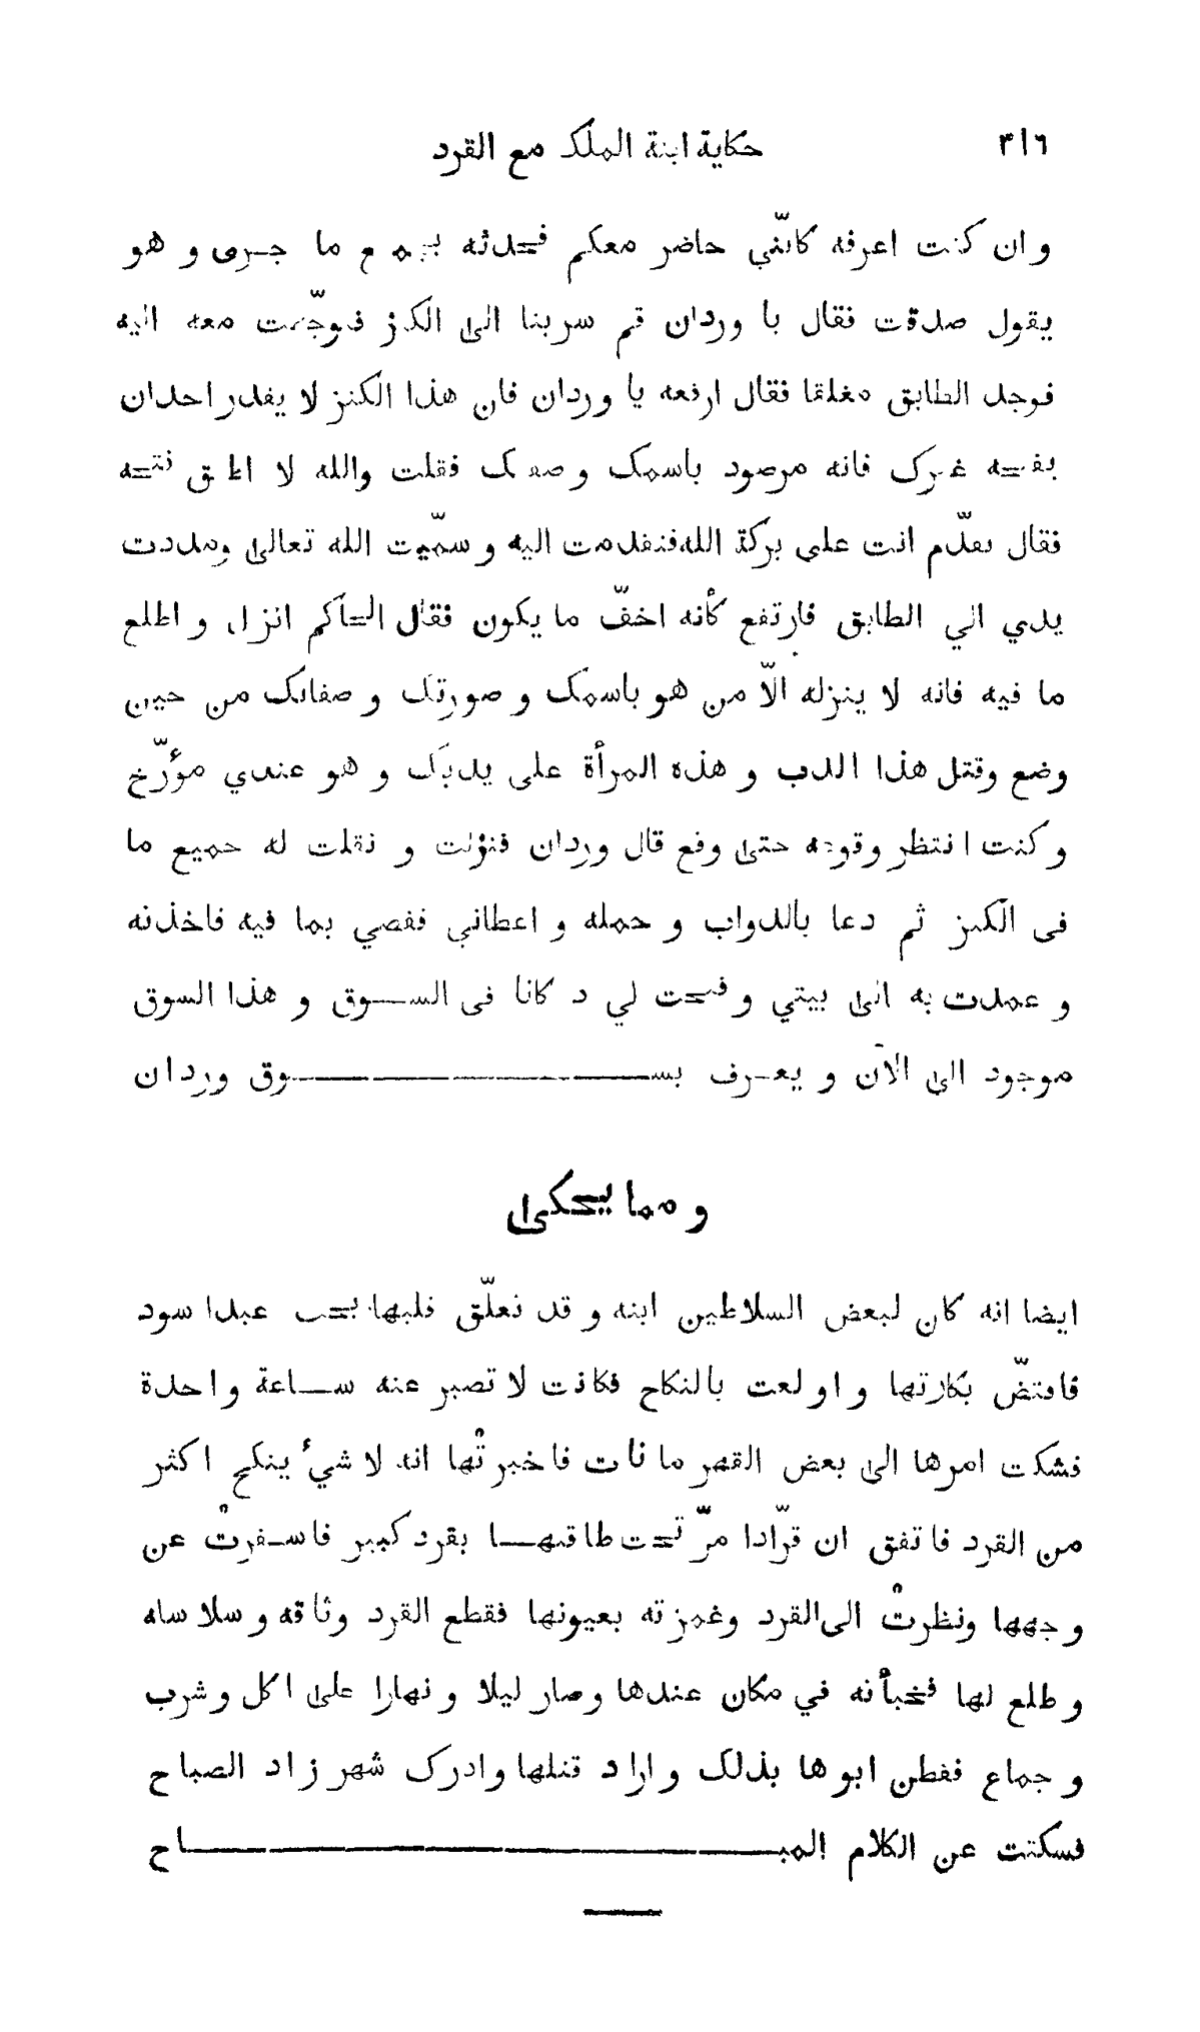 ٣١٦ حكاية ابنة الملك مع القرد
وان كنت اعرفه كانّني حاضر معكم فحدثه بجميع ما جرى وهو
يقول صدقت فقال يا وردان قم سر بنا الى الكنز فتوجّهت معه اليه
فوجد الطابق مغلقا فقال ارفعه يا وردان فان هذا الكنز لا يقدر احد ان
يفتحه غيرك فانه مرصود باسمك وصفتك فقلت والله لا اطيق فتحه
فقال تقدّم انت على بركة الله فتقدمت اليه وسمّيت الله تعالى ومددت
يدي الي الطابق فارتفع كأنه اخفّ ما يكون فقال الحاكم انزل واطلع
ما فيه فانه لا ينزله الّا من هو باسمك وصورتك وصفاتك من حين
وضع وقتل هذا الدب وهذه المرأة على يديك وهو عندي مؤرّخ
وكنت انتظر وقوعه حتى وقع قال وردان فنزلت ونقلت له جميع ما
فى الكنز ثم دعا بالدواب وحمله واعطاني قفصي بما فيه فاخذته
وعمدت به الى بيتي وفتحت لي دكانا فى السوق وهذا السوق
موجود الى الآن ويعرف بسوق وردان
ومما يحكى
ايضا انه كان لبعض السلاطين ابنه وقد تعلّق قلبها بحب عبدا سود
فافتضّ بكارتها واولعت بالنكاح فكانت لا تصبر عنه ساعة واحدة
فشكت امرها الى بعض القهرمانات فاخبرتْها انه لا شيءٌ ينكح اكثر
من القرد فاتفق ان قرّادا مرّ تحت طاقتها بقرد كبير فاسفرتْ عن
وجهها ونظرتْ الى القرد وغمزته بعيونها فقطع القرد وثاقه وسلاسله
وطلع لها فخبأته في مكان عندها وصار ليلا ونهارا على اكل وشرب
وجماع ففطن ابوها بذلك واراد قتلها وادرك شهرزاد الصباح
فسكتت عن الكلام المباح